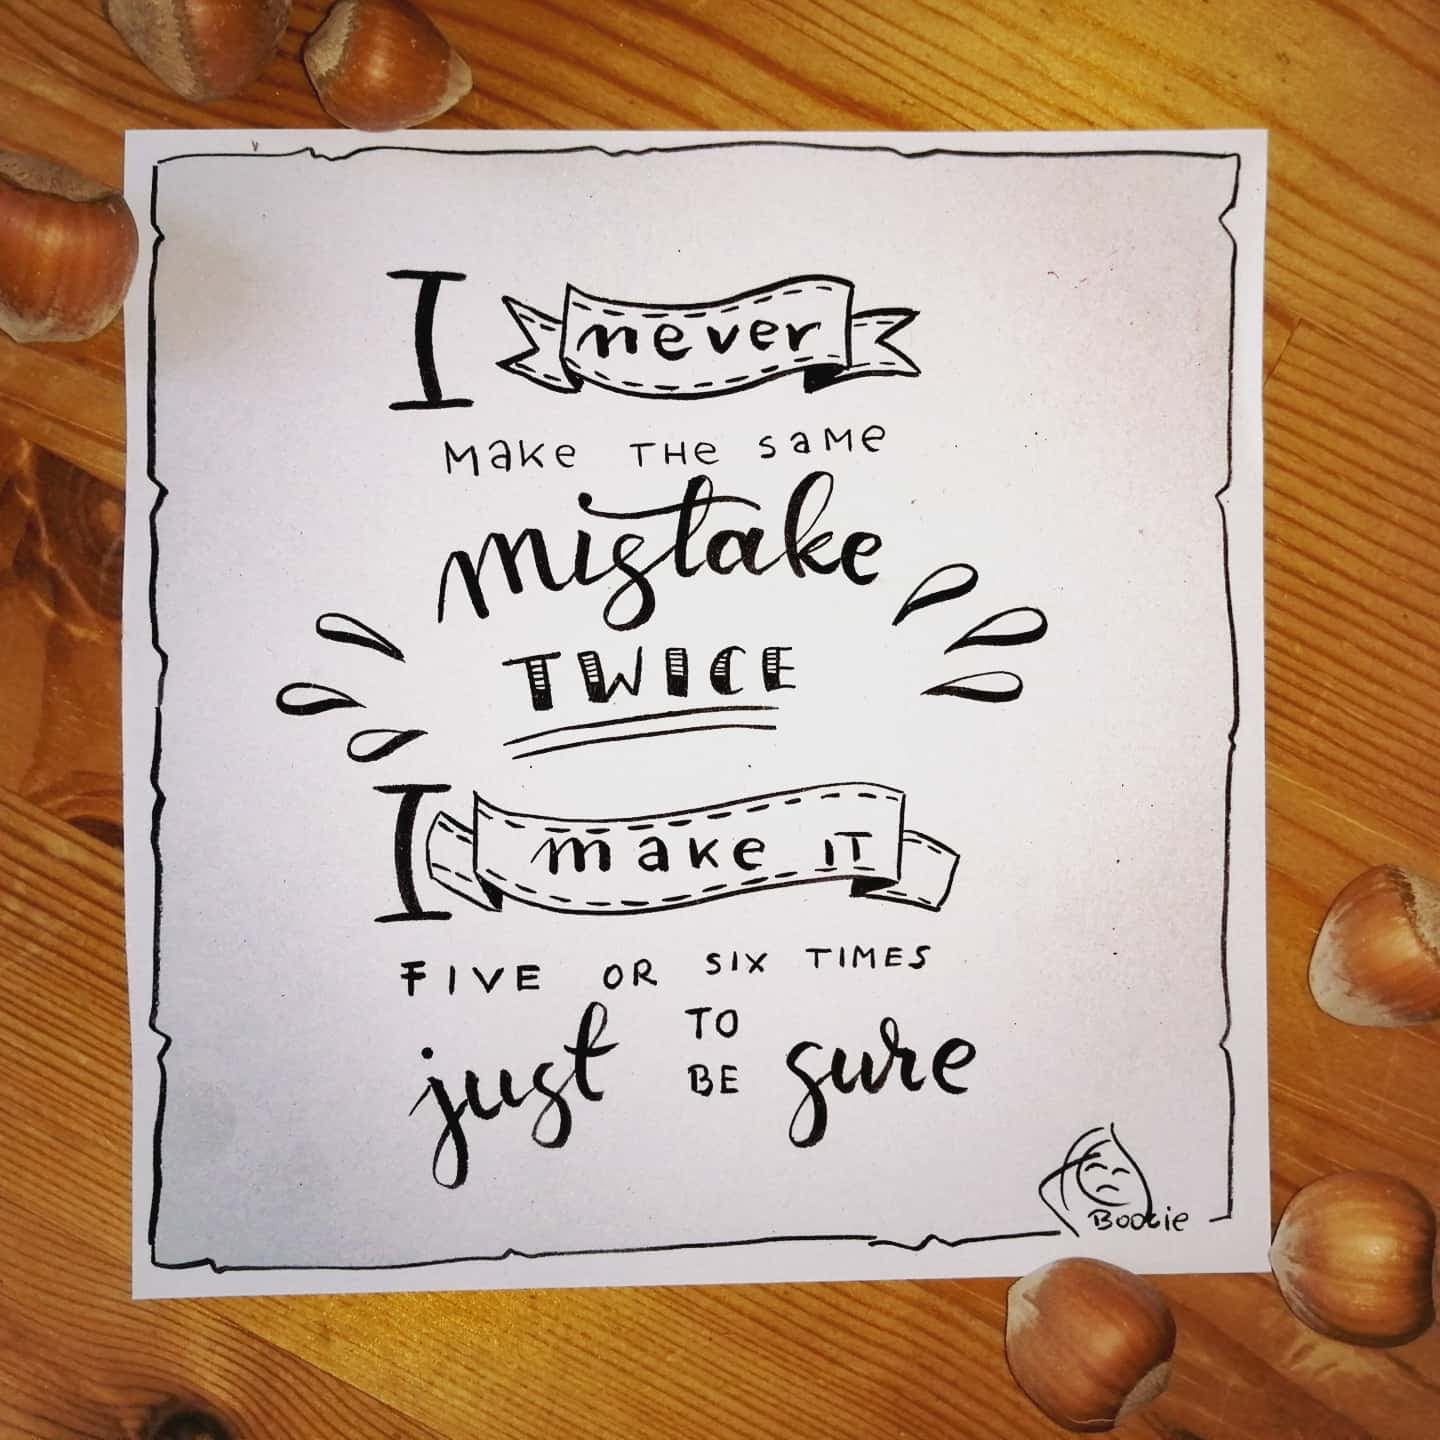 I never
MAKE THE SAME
mistake
TWICE
I make IT
FIVE OR SIX TIMES
just TO BE sure
Bootie